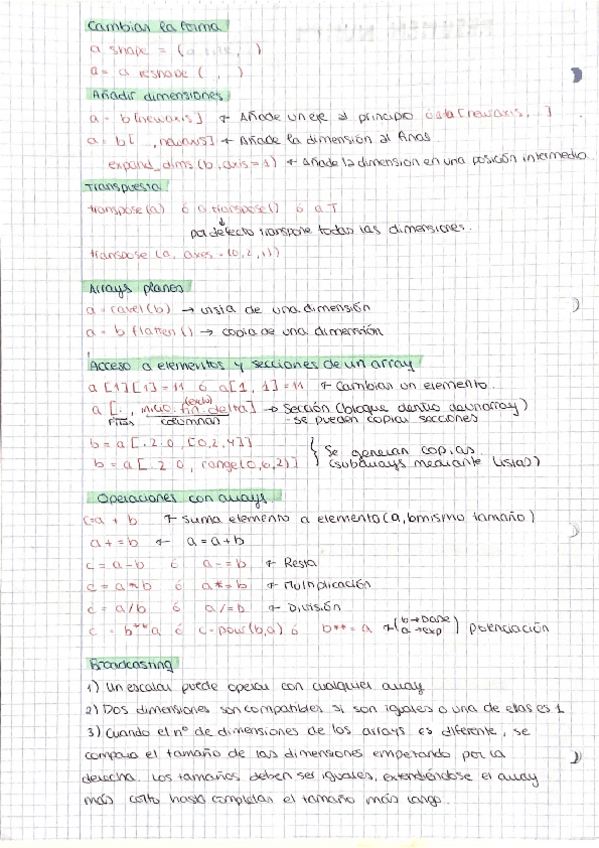 Cambiar la forma
a shape = ( , )
a = a reshape ( , )
Añadir dimensiones
a = b[newaxis] → Añade un eje al principio ó sta[newaxis, ..]
a = b[ , newaxis] → Añade la dimensión al final
expand_dims (b, axis = 1) → añade la dimensión en una posición intermedia
Transpuesta
transpose(a) ó a.transpose() ó a.T
por defecto transpone todas las dimensiones.
transpose (a, axes = (0,2,1))
Arrays planos
a = ravel(b) → vista de una dimensión
a = b flatten() → copia de una dimensión
Acceso a elementos y secciones de un array
a[1][1] = 11 ó a[1, 1] = 11 → Cambiar un elemento.
a [ : , inicio:fin:delta] → Sección (bloque dentro de un array)
Filas columnas - se pueden copiar secciones
b = a [ : 2 0 , [0,2,4]] Se generan copias
b = a [ : 2 0 , range(0,6,2)] (subarrays mediante listas)
Operaciones con arrays
c = a + b → Suma elemento a elemento (a, b mismo tamaño)
a += b ← a = a + b
c = a - b ó a -= b → Resta
c = a * b ó a *= b → Multiplicación
c = a / b ó a /= b → División
c = b**a ó c = pow(b,a) ó b** = a → (b → base a → exp) potenciación
Broadcasting
1) Un escalar puede operar con cualquier array
2) Dos dimensiones son compatibles si son iguales o una de ellas es 1
3) Cuando el nº de dimensiones de los arrays es diferente, se
compara el tamaño de las dimensiones empezando por la
derecha. Los tamaños deben ser iguales, extendiéndose el array
más corto hasta completar el tamaño más largo.